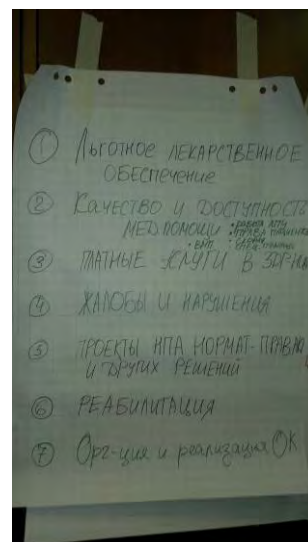 ① Льготное лекарственное
обеспечение
② Качество и доступность
мед помощи
③ Платные услуги в
④ Жалобы и нарушения
⑤ Проекты НПА нормат-правов
и других решений
⑥ Реабилитация
⑦ Орг-ция и реализация ОК